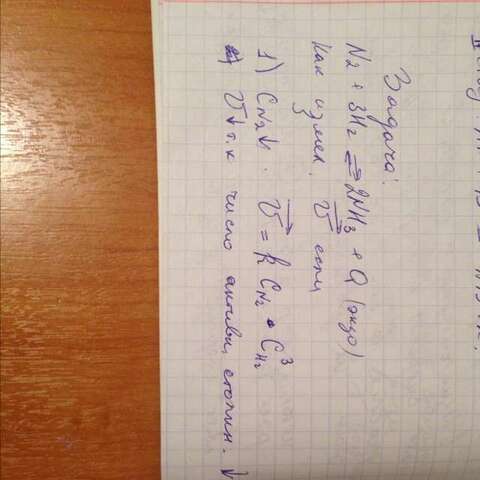 Задача:
N₂ + 3H₂ ⇌ 2NH₃ + Q (экзо)
Как измен. v⃗ если
1) C_N₂↓. v⃗ = k C_N₂ • C³_H₂
v↓ т.к число активн. столкн. ↓